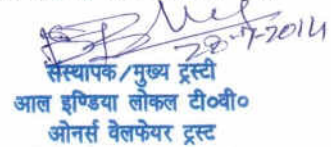 28-7-2014
संस्थापक/मुख्य ट्रस्टी
आल इण्डिया लोकल टी०बी०
ओनर्स वेलफेयर ट्रस्ट